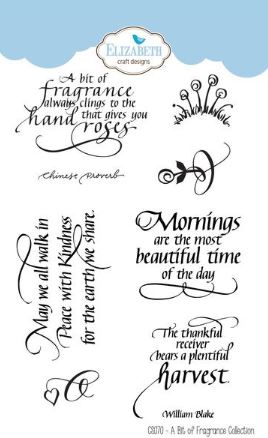 ELIZABETH
craft designs
A bit of
fragrance
always clings to the
hand that gives you
roses
Chinese Proverb
May we all walk in
Peace with Kindness
for the earth we share.
Mornings
are the most
beautiful time
of the day
The thankful
receiver
bears a plentiful
harvest.
William Blake
CS070 - A Bit of Fragrance Collection